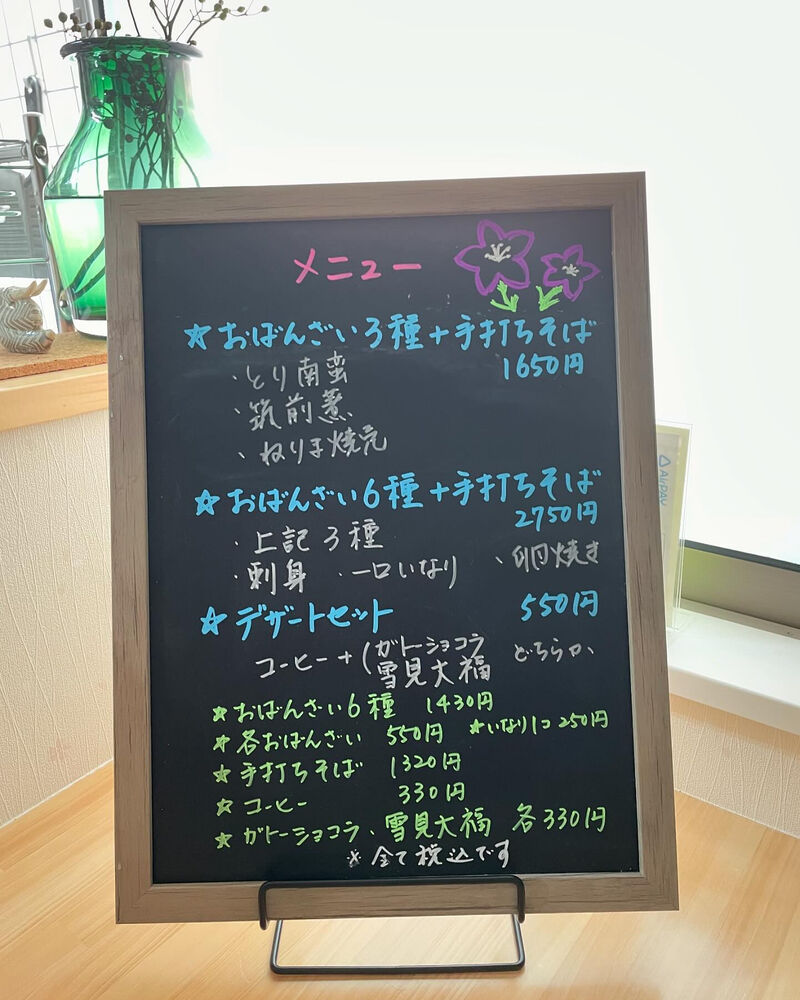 メニュー
☆おばんざい3種+手打ちそば
1650円
・とり南蛮
・筑前煮
・ねりま焼売
☆おばんざい6種+手打ちそば
2750円
・上記3種
・刺身 ・一口いなり ・卵焼き
☆デザートセット 550円
コーヒー+(ガトーショコラ
雪見大福 どちらか
☆おばんざい6種 1430円
☆各おばんざい 550円 ☆いなり1コ250円
☆手打ちそば 1320円
☆コーヒー 330円
☆ガトーショコラ、雪見大福 各330円
※全て税込です
AirPAY